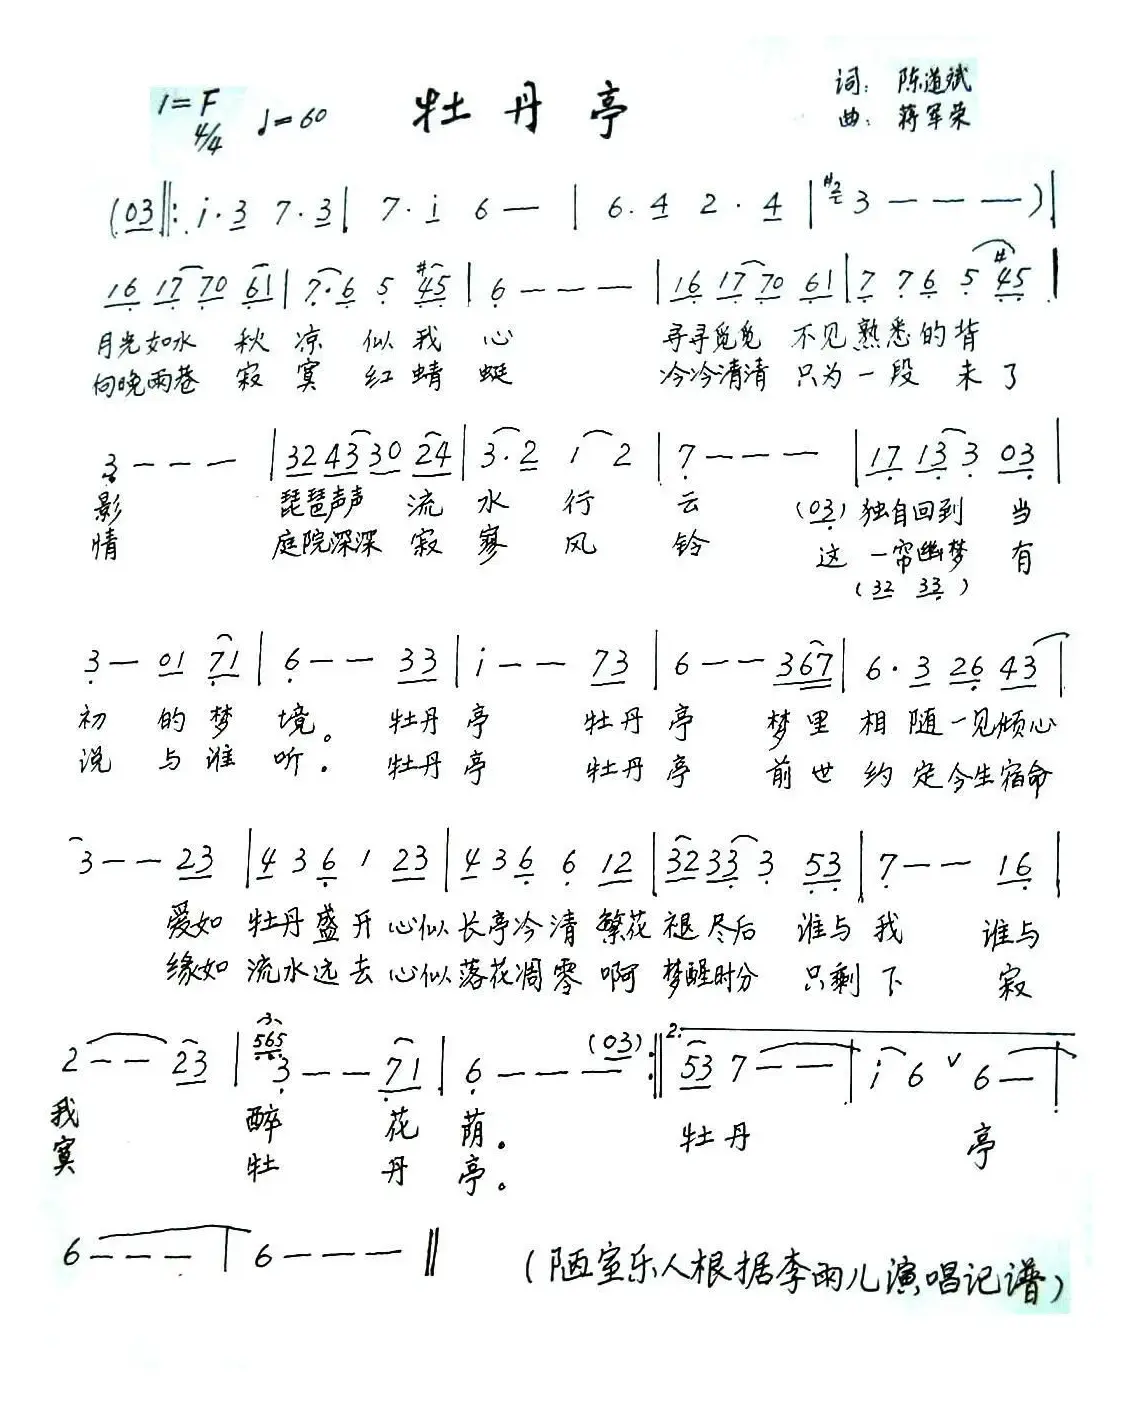 1=F 4/4 ♩=60 牡丹亭 词：陈道斌
曲：蒋军荣
(03‖: i·3 7·3 | 7·i 6— | 6·4 2·4 | #2 3———)|
16 17 70 61 | 7·6 5 #45 | 6——— | 16 17 70 61 | 7 76 5 #45 |
月光如水 秋凉 似我心 寻寻觅觅 不见熟悉的背
向晚雨巷 寂寞 红蜻蜓 冷冷清清 只为一段未了
3——— | 32 43 30 24 | 3·2 1 2 | 7——— | 17 13 3 03 |
影 琵琶声声 流水行云 (03) 独自回到 当
情 庭院深深 寂寥风铃 这一帘幽梦 有
(32 33)
3— 01 71 | 6—— 33 | i—— 73 | 6—— 367 | 6·3 26 43 |
初 的梦境。 牡丹亭 牡丹亭 梦里相随一见倾心
说 与谁听. 牡丹亭 牡丹亭 前世约定今生宿命
3—— 23 | 4 3 6 1 23 | 4 3 6 6 12 | 32 33 3 53 | 7—— 16 |
爱如 牡丹盛开 心似长亭冷清 繁花褪尽后 谁与我 谁与
缘如 流水远去 心似落花凋零 啊 梦醒时分 只剩下 寂
2—— 23 | 565 3—— 71 | 6—— (03) :‖ 2. 53 7—— | i 6 ∨ 6— |
我 醉 花荫。 牡丹 亭
寞 牡 丹亭。
6——— | 6——— ‖ (陋室乐人根据李雨儿演唱记谱)